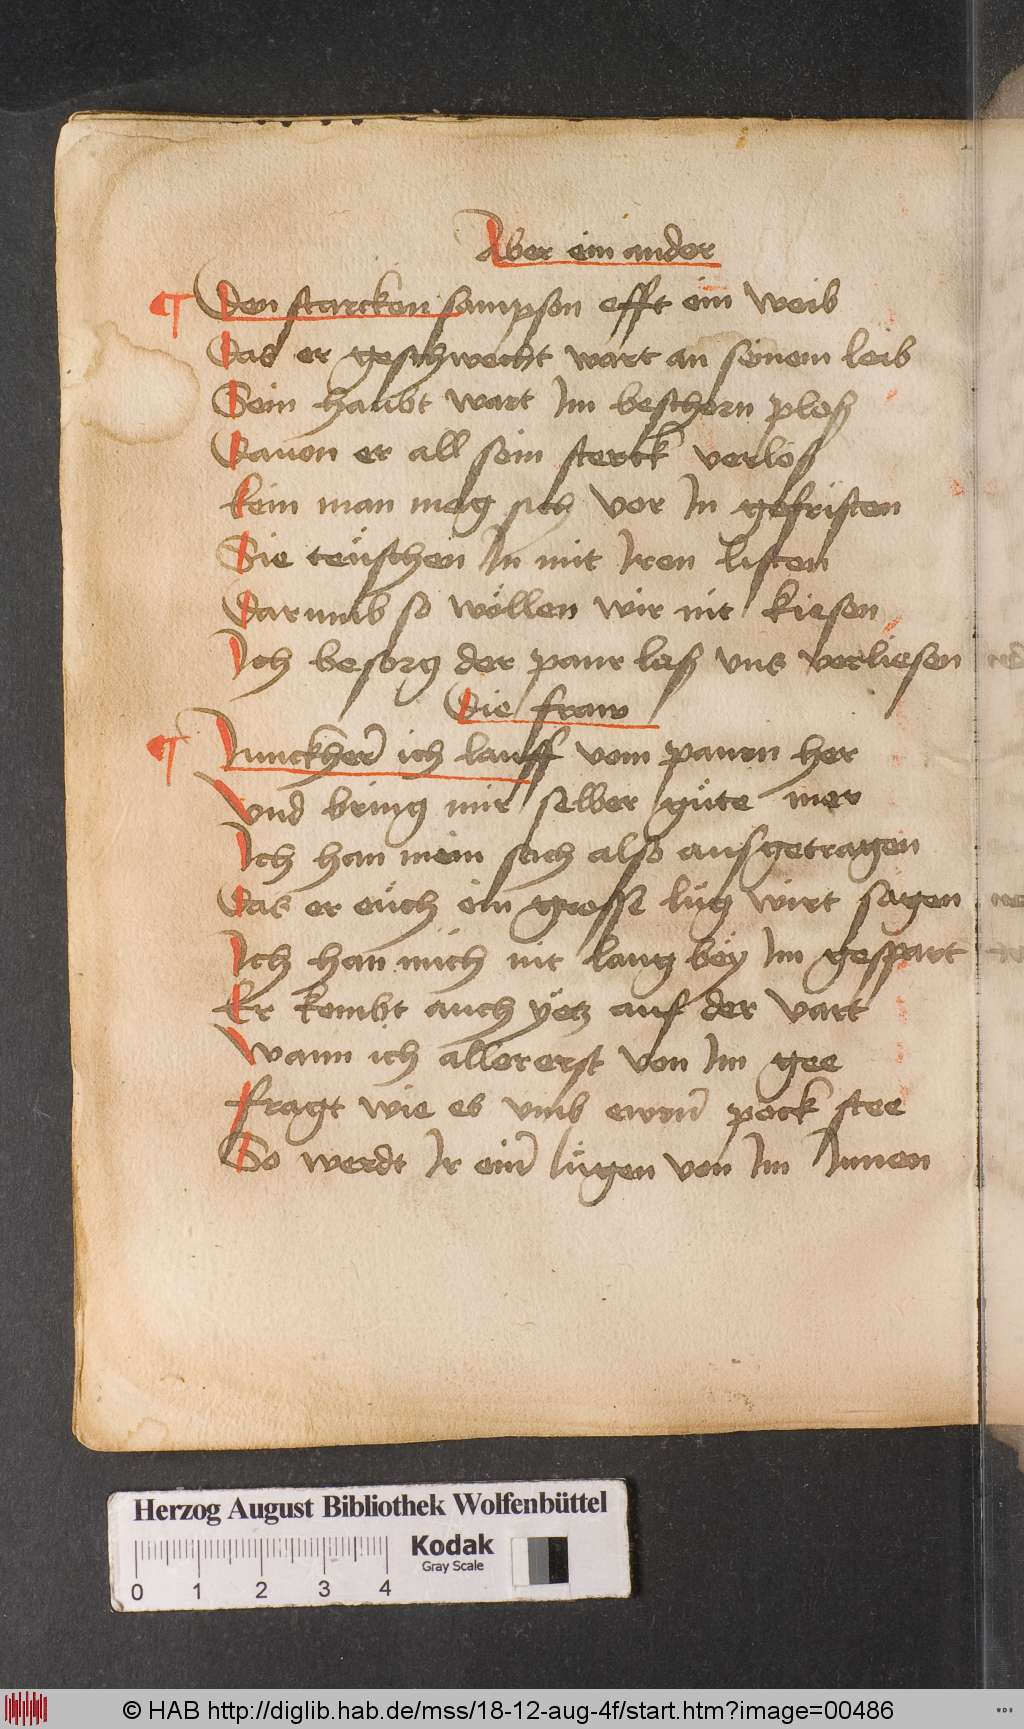 Aber ein ander
¶ Den starcken sampson efft ein weib
Das er geschwecht wart an seinem leib
Sein haubt wart Im beschorn ploß
Dauon er all sein sterck verloß
kein man mag sich vor In gefristen
Sie teüschen In mit Iren listen
Darumb so wöllen wir nit kiesen
Ich besorg der paur laß vns verliesen
Die fraw
¶ Iunckher̄ ich lauff vom pauren her
Vnd bring mir selber güte mer
Ich han mein sach also ausgetragen
Das er eüch ein grosse lüg wirt sagen
Ich han mich nit lang bëy Im gespart
Er kombt auch yëtz auf der vart
Wann ich allererst von Im gee
fragt wie es vmb ewrn̄ pock stee
So werdt Ir ein̄ lügen von Im Innen
Herzog August Bibliothek Wolfenbüttel
Kodak
Gray Scale
0 1 2 3 4
© HAB http://diglib.hab.de/mss/18-12-aug-4f/start.htm?image=00486